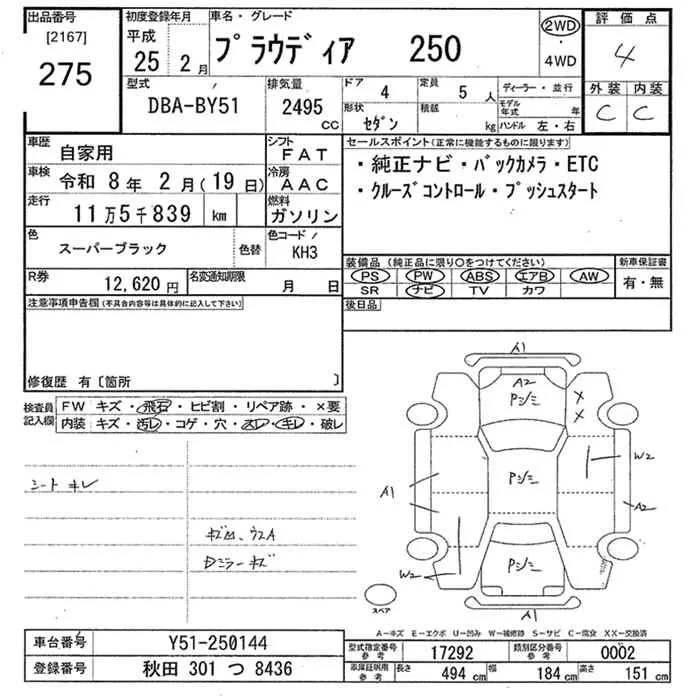 出品番号
[2167]
275
初度登録年月
平成
25年 2月
車名・グレード
プラウディア 250
2WD
・
4WD
評価点
4
外装 内装
C C
型式
DBA-BY51
排気量
2495
CC
ドア 4
形状 セダン
定員 5 人
積載 kg
ディーラー・並行
モデル年式 年
ハンドル 左・右
車歴
自家用
シフト
FAT
車検
令和 8年 2月(19日)
冷房
AAC
走行
11万5千839 km
燃料
ガソリン
色
スーパーブラック
色替
色コード
KH3
R券
12,620 円
名変通知期限
月 日
セールスポイント(正常に機能するものに限ります)
・純正ナビ・バックカメラ・ETC
・クルーズコントロール・プッシュスタート
装備品(純正品に限り○をつけてください)
PS PW ABS エアB AW
SR ナビ TV カワ
新車保証書
有・無
後日品
注意事項申告欄(不具合内容等は具体的に記入して下さい)
修復歴 有〔箇所 〕
検査員
記入欄
FW キズ・飛石・ヒビ割・リペア跡・×要
内装 キズ・汚レ・コゲ・穴・スレ・キレ・破レ
シート キレ
Dミラーキズ
A1
A2
Pジミ
×
×
W2
Pジミ
A1
A2
Pジミ
W2
A1
スペア
A-キズ E-エクボ U-凹み W-補修跡 S-サビ C-腐食 XX-交換済
車台番号
Y51-250144
登録番号
秋田 301 つ 8436
型式指定番号
参考
17292
類別区分番号
参考
0002
車庫証明用
参考
長さ 494 cm
幅 184 cm
高さ 151 cm